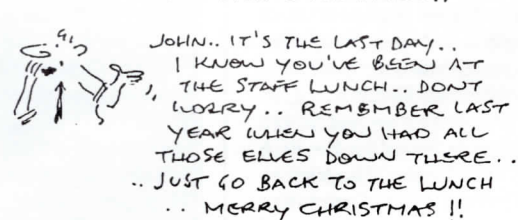 JOHN.. IT'S THE LAST DAY..
I KNOW YOU'VE BEEN AT
THE STAFF LUNCH.. DONT
WORRY.. REMEMBER LAST
YEAR WHEN YOU HAD ALL
THOSE ELVES DOWN THERE..
.. JUST GO BACK TO THE LUNCH
.. MERRY CHRISTMAS !!